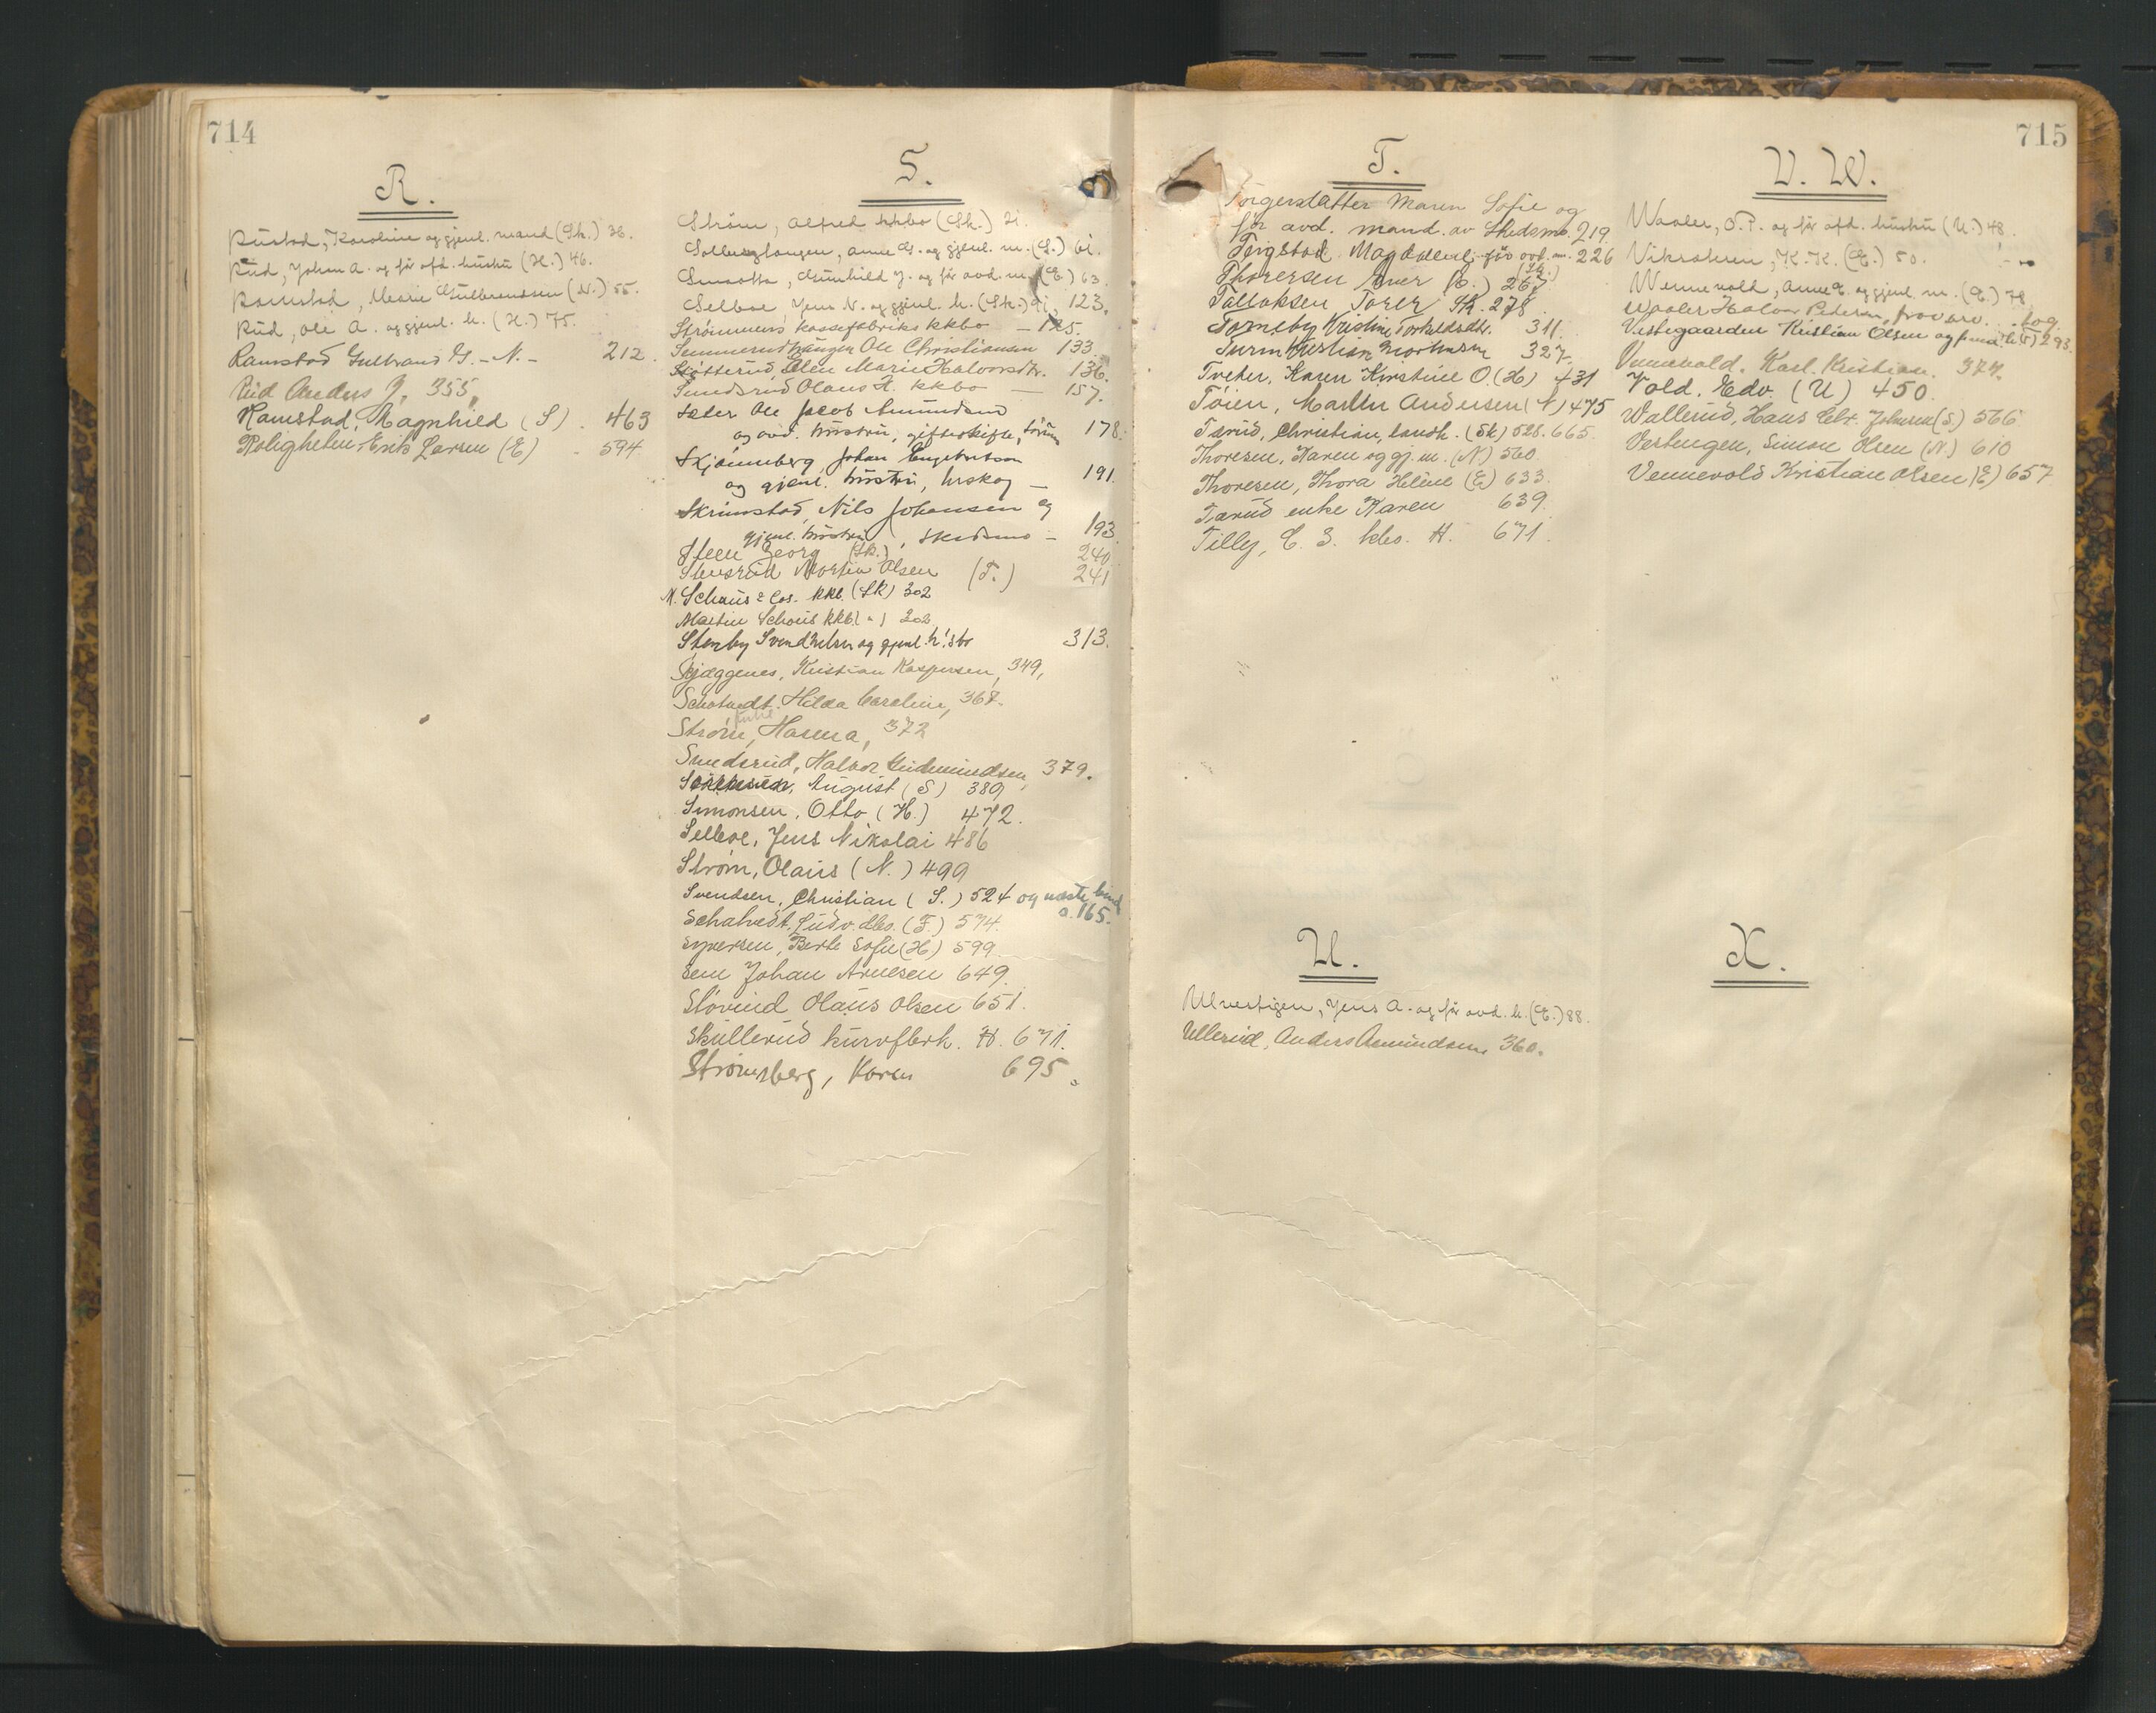 714
R.
Rustad, Karoline og gjenl. mand (Sk.) 36.
Rud, Johan A. og før afd. hustru (H.) 46.
Ramstad, Marie Gulbrandsen (N.) 55.
Rud, Ole A. og gjenl. h. (H.) 75.
Ramstad Gulbrand G. - N. - 212.
Rud Anders J, 355,
Ramstad, Magnhild (S) . 463
Roligheten Erik Larsen (E) - 594
S.
Strøm, Alfred kkbo (Sk.) 21.
Solberghaugen, Anne G. og gjenl. m. (S.) 61.
Gunhild J. og før avd. m. (E.) 63.
Selboe, Jens N. og gjenl. h. (Sk.) 91, 123.
Strømmens kassefabriks kkbo - 125.
Ole Christiansen 133
Slotterud Elen Marie Halvorsdtr. 136.
Sundsrud Olaus H. kkbo - 157.
Sæter Ole Jacob Amundsen
og avd. hustru, gifteskifte, 178.
Skjønneberg, Johan Engebretsen
og gjenl. hustru, Urskog - 191.
Skrimstad, Nils Johansen og
gjenl. hustru, Skedsmo - 193
Steen Georg (Sk.) 240
Stensrud Morten Olsen (F.) 241
M. Schous & Cos. kkb. (Sk) 302
Martin Schous kkb (-) 302
Stenby Svend Nelsen og gjenl. h. 313.
Skjæggenes, Kristian Kaspersen, 349,
Hilda Caroline, 368.
Strøm, enke Hanna, 372
Sundsrud, Halvor Gudmundsen, 379.
August (S) 389
Simonsen, Otto (H.) 472.
Selboe, Jens Nikolai 486
Strøm, Olaus (N.) 499
Svendsen, Christian (S.) 524 og næste bind
s. 165.
Schahvedt, Ludv. dbo. (F.) 574.
Syversen, Berte Sofie (H) 599
Sem Johan Arnesen 649.
Støvind Olaus Olsen 651.
Skullerud kurvfbrk. H. 671.
Strømsberg, Karen 695.
715
T.
Torgersdatter Maren Sofie og
før avd. mand. av Skedsmo 219.
Teigstad Magdalene før avd. m. 226
(Sk.)
Thoresen Iver (B.) 267
Tollaksen Torer Sk. 278
Torneby Kristine Torkeldsdtr. 311.
Turm Kristian 327
Tveter, Karen Kirstine O. (H) 431
Tøien, Martin Andersen (N) 475
Tærud, Christian, landh. (Sk) 528. 665.
Thoresen, Karen og gj. m. (N) 560
Thoresen, Thora Heline (E) 633
Tærud enke Karen 639
Tilly, C. S. kbo. H. 671.
U.
Ulvestigen, Jens A. og før avd. h. (E.) 88.
Ullerud, Anders Amundsen 360.
V. W.
Waaler, O. P. og før afd. hustru (U.) 48.
K. K. (E.) 50.
Wennevold, Anne E. og gjenl. m. (E.) 78
Waaler Halvor Pedersen, 109.
Vestegaarden Kristian Olsen og 293.
Vennevold, Karl Kristian. 374.
Vold. Edv. (U) 450.
Wallerud, Hans Johansen (S.) 566
Vestengen, Simon Olsen (N.) 610
Vennevold Kristian Olsen (E) 657
X.